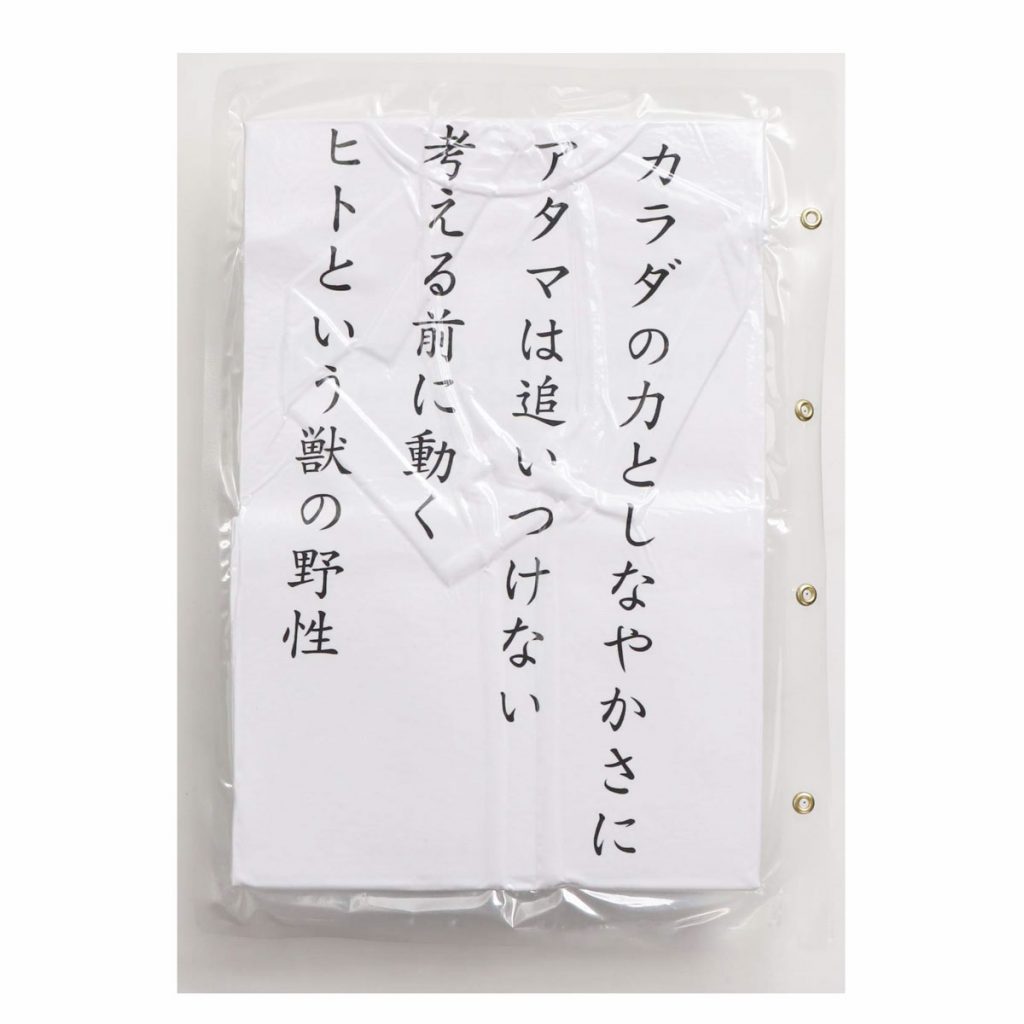 カラダの力としなやかさに
アタマは追いつけない
考える前に動く
ヒトという獣の野性